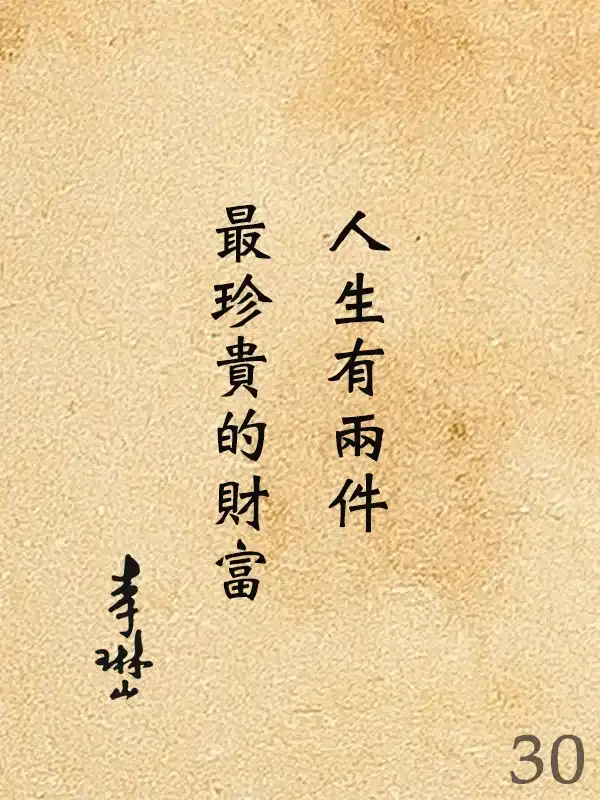 人生有兩件
最珍貴的財富
李琳山
30